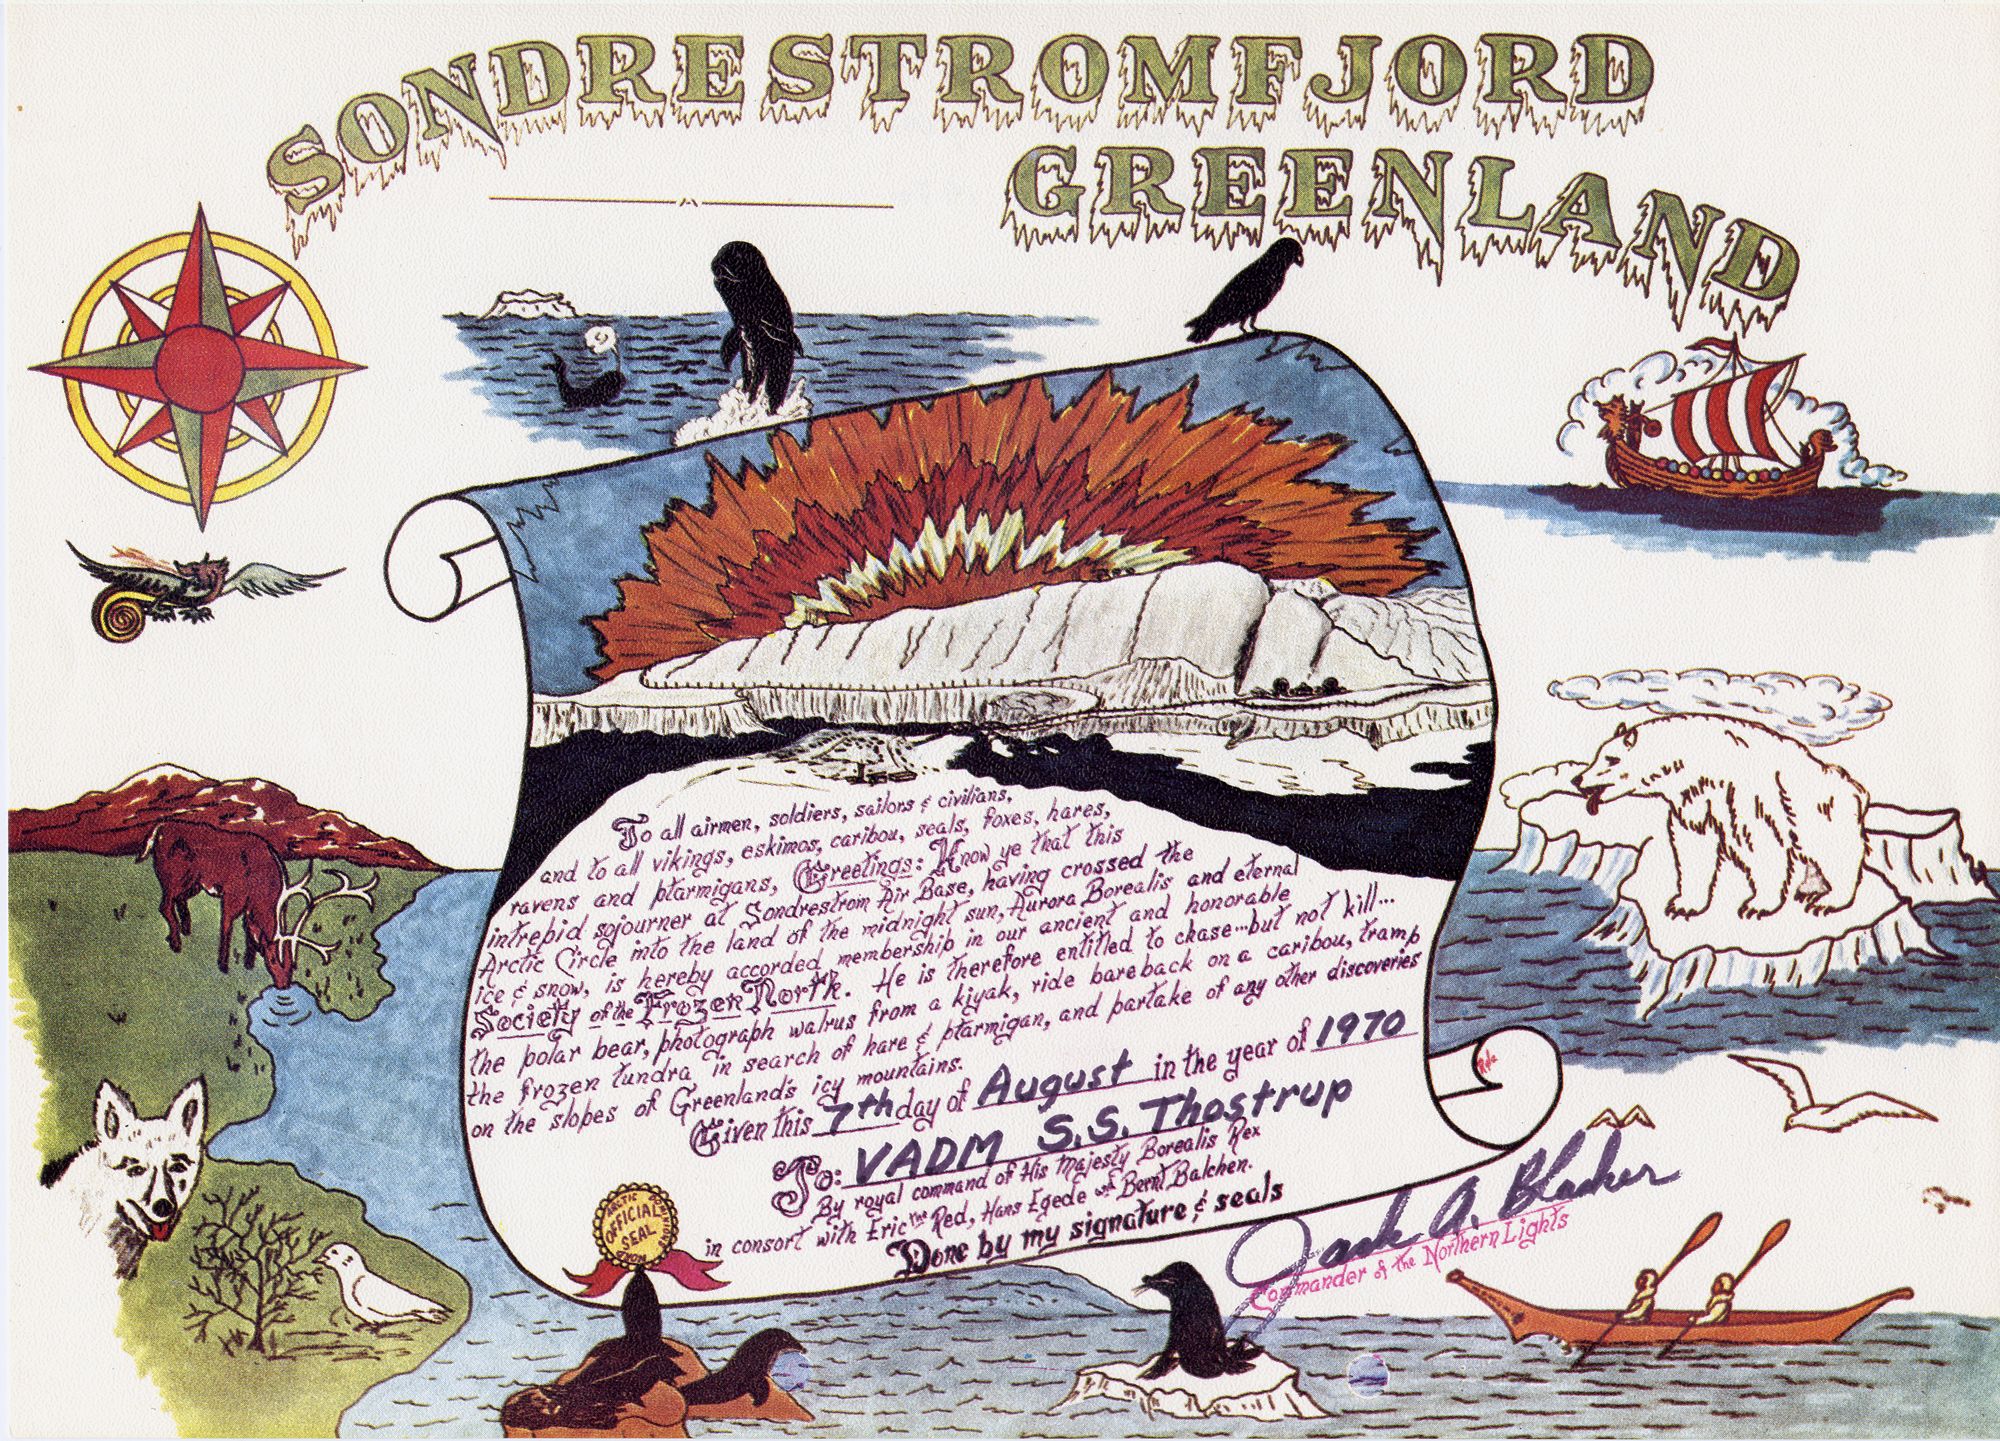 SONDRESTROMFJORD
GREENLAND
To all airmen, soldiers, sailors & civilians,
and to all vikings, eskimos, caribou, seals, foxes, hares,
ravens and ptarmigans, Greetings: Know ye that this
intrepid sojourner at Sondrestrom Air Base, having crossed the
Arctic Circle into the land of the midnight sun, Aurora Borealis and eternal
ice & snow, is hereby accorded membership in our ancient and honorable
Society of the Frozen North. He is therefore entitled to chase...but not kill...
the polar bear, photograph walrus from a kiyak, ride bareback on a caribou, tramp
the frozen tundra in search of hare & ptarmigan, and partake of any other discoveries
on the slopes of Greenland's icy mountains.
Given this 7th day of August in the year of 1970
To: VADM S.S. Thostrup
By royal command of His Majesty Borealis Rex
in consort with Eric the Red, Hans Egede and Bernt Balchen.
Done by my signature & seals
Jack A. Blacker
Commander of the Northern Lights
ARCTIC DOMINIONS
OFFICIAL
SEAL